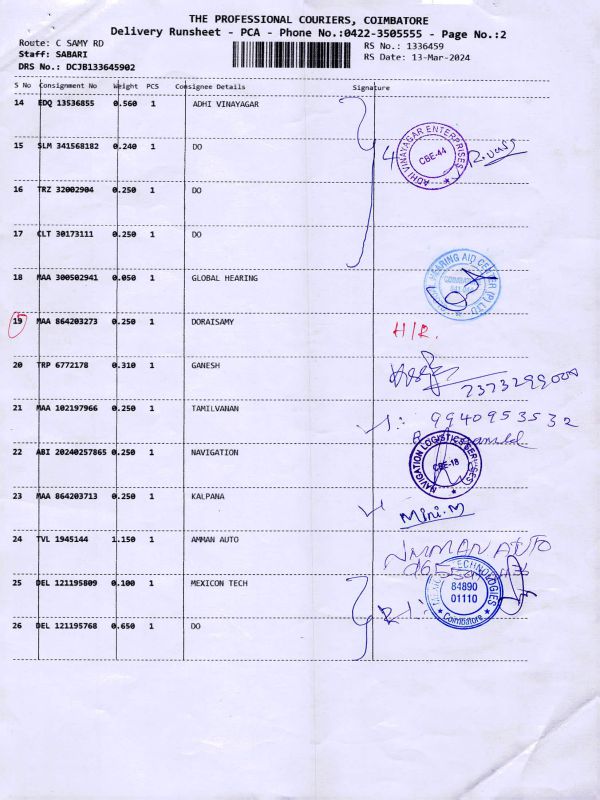 THE PROFESSIONAL COURIERS, COIMBATORE
Delivery Runsheet - PCA - Phone No.:0422-3505555 - Page No.:2
Route: C SAMY RD
RS No.: 1336459
Staff: SABARI
RS Date: 13-Mar-2024
DRS No.: DCJB133645902
S No Consignment No Weight PCS Consignee Details Signature
14 EDQ 13536855 0.560 1 ADHI VINAYAGAR
15 SLM 341568182 0.240 1 DO
4 ADHI VINAYAGAR ENTERPRISES CBE-44
16 TRZ 32002904 0.250 1 DO
17 CLT 30173111 0.250 1 DO
18 MAA 300502941 0.050 1 GLOBAL HEARING
HEARING AID CENTER (P) LTD
19 MAA 864203273 0.250 1 DORAISAMY H/R.
20 TRP 6772178 0.310 1 GANESH
21 MAA 102197966 0.250 1 TAMILVANAN
9940953532
22 ABI 20240257865 0.250 1 NAVIGATION
NAVIGATION LOGISTICS SERVICES CBE-18
23 MAA 864203713 0.250 1 KALPANA
Mini.M
24 TVL 1945144 1.150 1 AMMAN AUTO
AMMAN AUTO
25 DEL 121195809 0.100 1 MEXICON TECH
TECHNOLOGIES 84890 01110 Coimbatore
26 DEL 121195768 0.650 1 DO